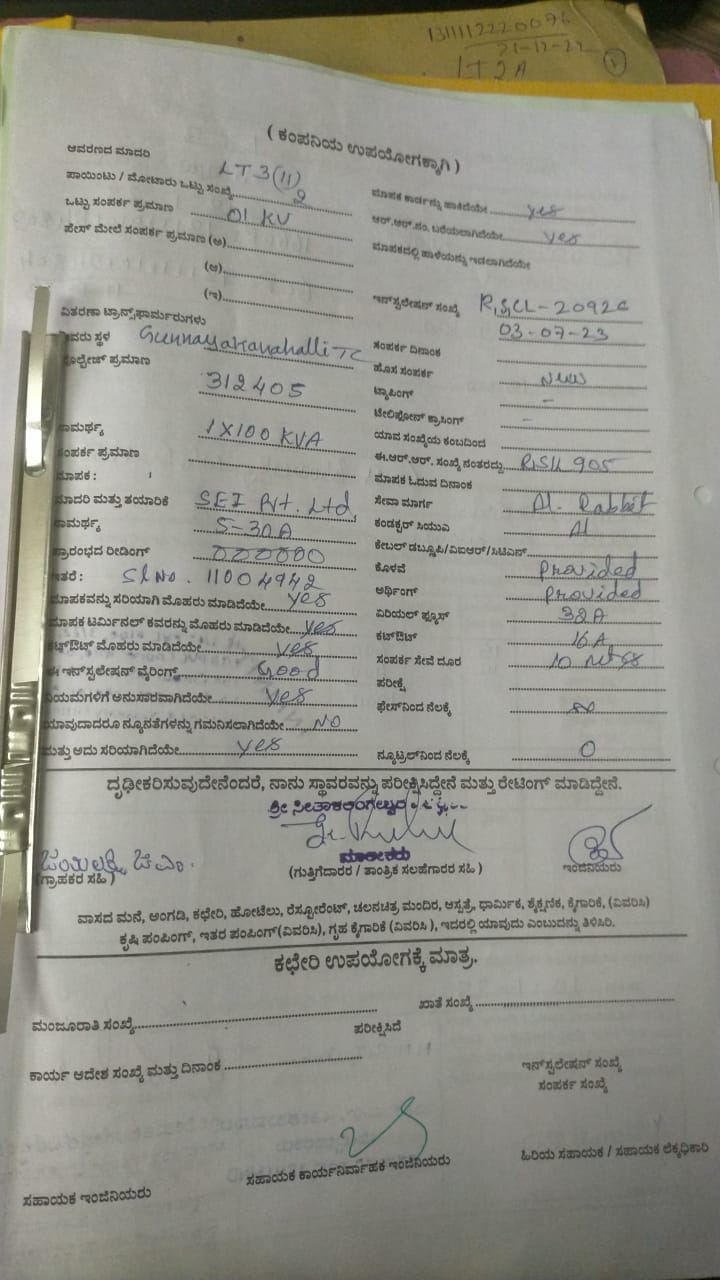 131112220076
21-12-22
LT 2A
( ಕಂಪನಿಯ ಉಪಯೋಗಕ್ಕಾಗಿ )
ಆವರಣದ ಮಾದರಿ LT3(11)
ಪಾಯಿಂಟು / ಮೋಟಾರು ಒಟ್ಟು ಸಂಖ್ಯೆ 2
ಒಟ್ಟು ಸಂಪರ್ಕ ಪ್ರಮಾಣ 01 KV
ಪೇಸ್ ಮೇಲೆ ಸಂಪರ್ಕ ಪ್ರಮಾಣ (ಅ)
(ಆ)
(ಇ)
ವಿತರಣಾ ಟ್ರಾನ್ಸ್‌ಫಾರ್ಮರುಗಳು
ಸ್ಥಳ Gunnayakanahalli TC
ಪ್ರಮಾಣ
312405
1X100 KVA
ಸಂಪರ್ಕ ಪ್ರಮಾಣ
ಮಾಪಕ :
ಮಾದರಿ ಮತ್ತು ತಯಾರಿಕೆ SEI Pvt. Ltd,
5-30A
ಪ್ರಾರಂಭದ ರೀಡಿಂಗ್ 000000
ಇತರೆ : Sl No. 11004942
ಮಾಪಕವನ್ನು ಸರಿಯಾಗಿ ಮೊಹರು ಮಾಡಿದೆಯೇ yes
ಮಾಪಕ ಟರ್ಮಿನಲ್ ಕವರನ್ನು ಮೊಹರು ಮಾಡಿದೆಯೇ yes
ಕಟ್ಔಟ್ ಮೊಹರು ಮಾಡಿದೆಯೇ yes
ಈ ಇನ್‌ಸ್ಟಲೇಷನ್ ವೈರಿಂಗ್ Good
ನಿಯಮಗಳಿಗೆ ಅನುಸಾರವಾಗಿದೆಯೇ Yes
ಯಾವುದಾದರೂ ನ್ಯೂನತೆಗಳನ್ನು ಗಮನಿಸಲಾಗಿದೆಯೇ NO
ಮತ್ತು ಅದು ಸರಿಯಾಗಿದೆಯೇ yes
ಮಾಪಕ ಕಾರ್ಡನ್ನು ಹಾಕಿದೆಯೇ yes
ಆರ್.ಆರ್.ನಂ. ಬರೆಯಲಾಗಿದೆಯೇ yes
ಮಾಪಕದಲ್ಲಿ ಹಾಳೆಯನ್ನು ಇಡಲಾಗಿದೆಯೇ
ಇನ್‌ಸ್ಟಲೇಷನ್ ಸಂಖ್ಯೆ
03-07-23
ಸಂಪರ್ಕ ದಿನಾಂಕ
ಹೊಸ ಸಂಪರ್ಕ New
ಟ್ಯಾಪಿಂಗ್ -
ಟೆಲಿಫೋನ್ ಕ್ರಾಸಿಂಗ್ -
ಯಾವ ಸಂಖ್ಯೆಯ ಕಂಬದಿಂದ
ಈ.ಆರ್.ಆರ್. ಸಂಖ್ಯೆ ನಂತರದ್ದು 905
ಮಾಪಕ ಓದುವ ದಿನಾಂಕ
ಸೇವಾ ಮಾರ್ಗ Al. Rabbit
ಕಂಡಕ್ಟರ್ ಸಿಯುಎ Al
ಕೇಬಲ್ ಡಬ್ಲ್ಯೂಪಿ/ವಿಐಆರ್/ಸಿಟಿಎಸ್
ಕೊಳವೆ Provided
ಅರ್ಥಿಂಗ್ Provided
ಏರಿಯಲ್ ಫ್ಯೂಸ್ 32A
ಕಟ್ಔಟ್ 16 A
ಸಂಪರ್ಕ ಸೇವೆ ದೂರ 10
ಪರೀಕ್ಷೆ
ಫೇಸ್‌ನಿಂದ ನೆಲಕ್ಕೆ
ನ್ಯೂಟ್ರಲ್‌ನಿಂದ ನೆಲಕ್ಕೆ 0
ದೃಢೀಕರಿಸುವುದೇನೆಂದರೆ, ನಾನು ಸ್ಥಾವರವನ್ನು ಪರೀಕ್ಷಿಸಿದ್ದೇನೆ ಮತ್ತು ರೇಟಿಂಗ್ ಮಾಡಿದ್ದೇನೆ.
ಮಾಲೀಕರು
(ಗ್ರಾಹಕರ ಸಹಿ )
(ಗುತ್ತಿಗೆದಾರರ / ತಾಂತ್ರಿಕ ಸಲಹೆಗಾರರ ಸಹಿ )
ಇಂಜಿನಿಯರು
ವಾಸದ ಮನೆ, ಅಂಗಡಿ, ಕಛೇರಿ, ಹೋಟೆಲು, ರೆಸ್ಟೋರೆಂಟ್, ಚಲನಚಿತ್ರ ಮಂದಿರ, ಆಸ್ಪತ್ರೆ, ಧಾರ್ಮಿಕ, ಶೈಕ್ಷಣಿಕ, ಕೈಗಾರಿಕೆ, (ವಿವರಿಸಿ)
ಕೃಷಿ ಪಂಪಿಂಗ್, ಇತರ ಪಂಪಿಂಗ್(ವಿವರಿಸಿ), ಗೃಹ ಕೈಗಾರಿಕೆ (ವಿವರಿಸಿ ), ಇದರಲ್ಲಿ ಯಾವುದು ಎಂಬುದನ್ನು ತಿಳಿಸಿರಿ.
ಕಛೇರಿ ಉಪಯೋಗಕ್ಕೆ ಮಾತ್ರ.
ಮಂಜೂರಾತಿ ಸಂಖ್ಯೆ
ಖಾತೆ ಸಂಖ್ಯೆ
ಪರೀಕ್ಷಿಸಿದೆ
ಕಾರ್ಯ ಆದೇಶ ಸಂಖ್ಯೆ ಮತ್ತು ದಿನಾಂಕ
ಇನ್‌ಸ್ಟಲೇಷನ್ ಸಂಖ್ಯೆ
ಸಂಪರ್ಕ ಸಂಖ್ಯೆ
ಸಹಾಯಕ ಇಂಜಿನಿಯರು
ಸಹಾಯಕ ಕಾರ್ಯನಿರ್ವಾಹಕ ಇಂಜಿನಿಯರು
ಹಿರಿಯ ಸಹಾಯಕ / ಸಹಾಯಕ ಲೆಕ್ಕಧಿಕಾರಿ